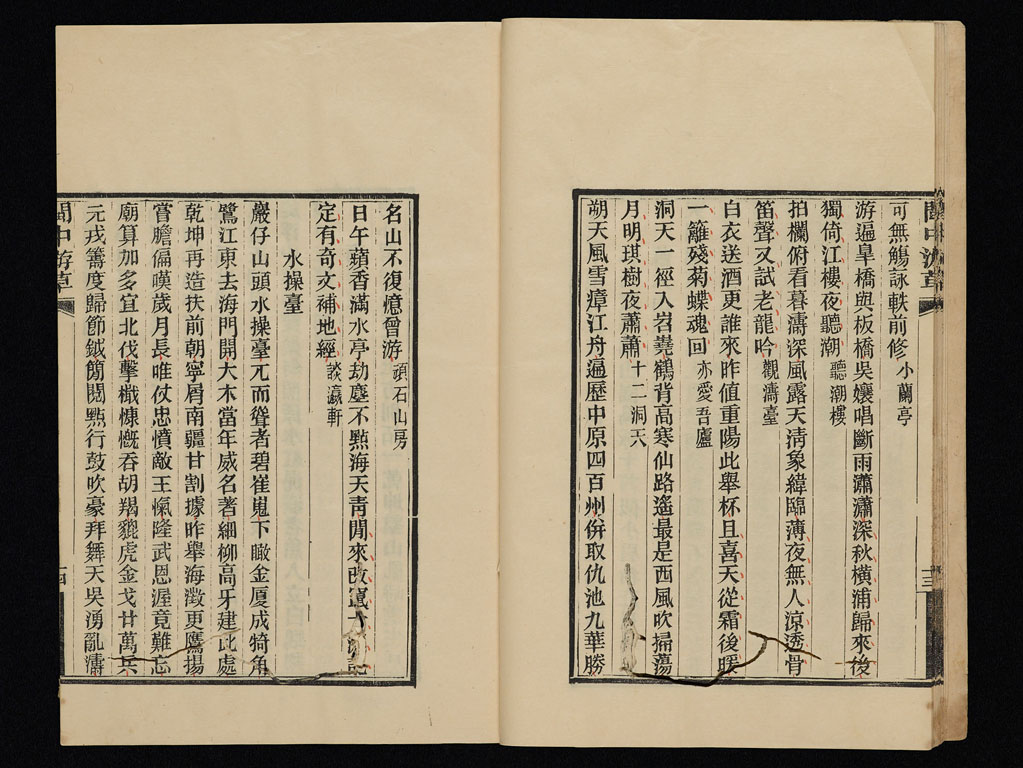 閩中游草
十三
可無觴詠軼前修 小蘭亭
游遍皐橋與板橋吳孃唱斷雨瀟瀟深秋橫浦歸來後
獨倚江樓夜聽潮 聽潮樓
拍欄俯看暮濤深風露天淸象緯臨薄夜無人涼透骨
笛聲又試老龍吟 觀濤臺
白衣送酒更誰來昨值重陽此舉杯且喜天從霜後暖
一籬殘菊蝶魂回 亦愛吾廬
洞天一徑入岧嶤鶴背高寒仙路遙最是西風吹掃蕩
月明琪樹夜蕭蕭 十二洞天
朔天風雪瘴江舟遍歷中原四百州倂取仇池九華勝
名山不復憶曾游 頑石山房
日午蘋香滿水亭劫塵不點海天靑閒來改
定有奇文補地經 談瀛軒
水操臺
巖仔山頭水操臺兀而聳者碧崔嵬下瞰金厦成犄角
鷺江東去海門開大木當年威名著細柳高牙建此處
乾坤再造扶前朝寧屑南疆甘割據昨舉海澂更鷹揚
嘗膽偏嘆歲月長唯仗忠憤敵王愾隆武恩渥竟難忘
廟算加多宜北伐擊檝慷慨吞胡羯貔虎金戈廿萬兵
元戎籌度歸節鉞簡閱點行鼓吹豪拜舞天吳湧亂濤
閩中游草
十四